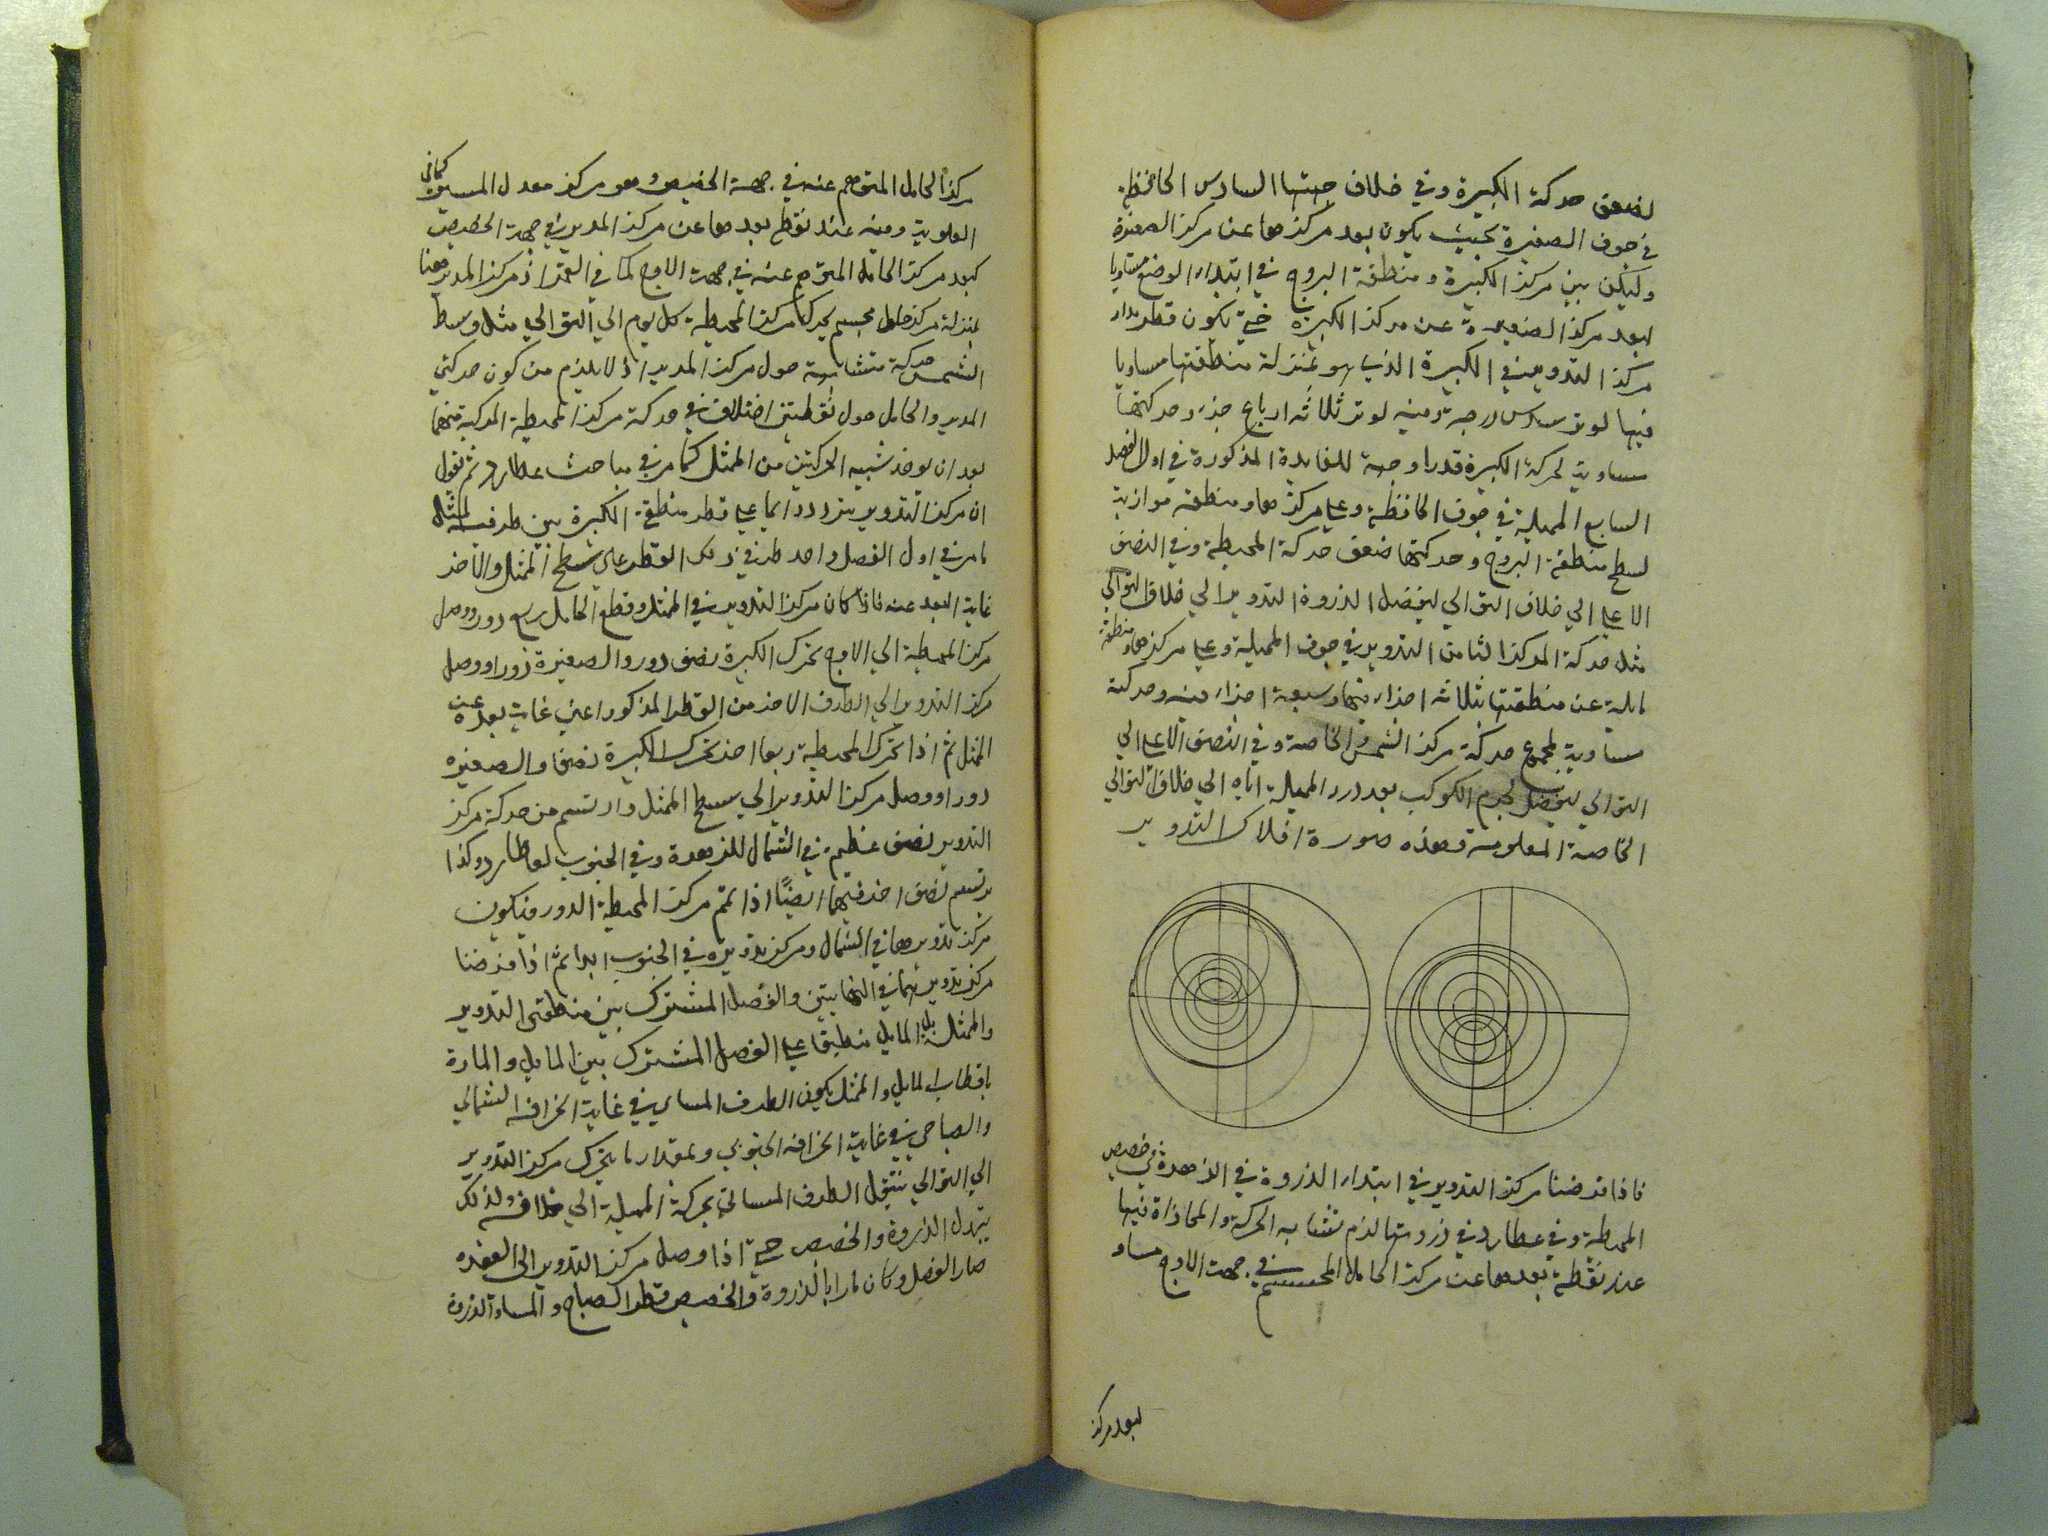 لضعف حركة الكبيرة وفي خلاف جهتها السادس الحافظة
في جوف الصغيرة بحيث يكون بعد مركزها عن مركز الصغيرة
وليكن بين مركز الكبيرة ومنطقة البروج في ابتداء الوضع مساويا
لبعد مركز الصغيرة عن مركز الكبيرة حتى يكون قطر مدار
مركز التدوير في الكبيرة الذي هو بمنزلة منطقتها مساويا
فيها لوتر سدس درجة ومنه لوتر ثلاثة ارباع جزء وحركتها
مساوية لحركة الكبيرة قدرا وجهة للفايدة المذكورة في اول الفصل
السابع المميلة في جوف الحافظة وعلى مركزها ومنطقة موازية
لسطح منطقة البروج وحركتها ضعف حركة المحيطة وفي النصف
الاعلى الى خلاف التوالي ليفضل الذروة التدوير الى خلاف التوالي
مثل حركة المركز الثامن التدوير في جوف المميلة وعلى مركزها ومنطقة
مايلة عن منطقتها ثلاثة اجزاء منها وسبعة اجزاء منه وحركته
مساوية لمجموع حركة مركز الشمس والخاصة وفي النصف الاعلى الى
التوالي ليفضل لجرم الكوكب بعد رد المميلة اياه الى خلاف التوالي
الخاصة المعلومة وهذه صورة افلاك التدوير
فاذا فرضنا مركز التدوير في ابتداء الذروة في الزهرة في حضيض
المحيطة وفي عطارد في ذروتها لزم تشابه الحركة والمحاذاة فيها
عند نقطة بعدها عن مركز الحامل المجسم في جهة الاوج مساو
لبعد مركز
مركز الحامل المتوهم عنه في جهة الحضيض وهو مركز معدل المسير كما في
العلوية ومنه عند نقطة بعدها عن مركز المدير في جهة الحضيض
كبعد مركز الحامل المتوهم عنه في جهة الاوج كما في القمر اذ مركز المدير هنا
بمنزلة مركز حامل مجسم يحرك مركز المحيطة كل يوم الى التوالي مثل وسط
الشمس حركة متشابهة حول مركز المدير اذ لا يلزم من كون حركتي
المدير والحامل حول نقطتين اختلاف في حركة مركز المحيطة المركبة منهما
بعد ان يوخذ شبيه الحركتين من الممثل كما مر في مباحث عطارد ثم نقول
ان مركز التدوير يتردد دايما على قطر منطقة الكبيرة بين طرفيه لمثل
ما مر في اول الفصل واحد طرفي ذلك القطر على سطح الممثل والاخر
غاية البعد عنه فاذا كان مركز التدوير في الممثل وقطع الحامل ربع دور ووصل
مركز المحيطة الى الاوج تحرك الكبيرة نصف دور والصغيرة دورا ووصل
مركز التدوير الى الطرف الاخر من القطر المذكور اعني غاية بعده عن
الممثل ثم اذا تحرك المحيطة ربعا اخر تحرك الكبيرة نصفا والصغيرة
دورا ووصل مركز التدوير الى سطح الممثل وارتسم من حركة مركز
التدوير نصف عظيمة في الشمال للزهرة وفي الجنوب لعطارد وكذا
يرتسم نصف اخر فيهما ايضًا اذا تمم مركز المحيطة الدور فيكون
مركز تدويرها في الشمال ومركز تدويره في الجنوب ابدا ثم اذا فرضنا
مركز تدويريهما في النهايتين والفصل المشترك بين منطقتي التدوير
والممثل بل المايل منطبقا على الفصل المشترك بين المايل والمارة
باقطاب المايل والممثل يكون الطرف المسايي في غاية انحرافه الشمالي
والصباحي في غاية انحرافه الجنوبي وبمقدار ما يتحرك مركز التدوير
الى التوالي ينتقل الطرف المسائي بحركة المميلة الى خلافه ولذلك
يتبدل الذروة والحضيض حتى اذا وصل مركز التدوير الى العقدة
صار الفصل وكان مارا بالذروة والحضيض قطر الصباح والمساء الذروة